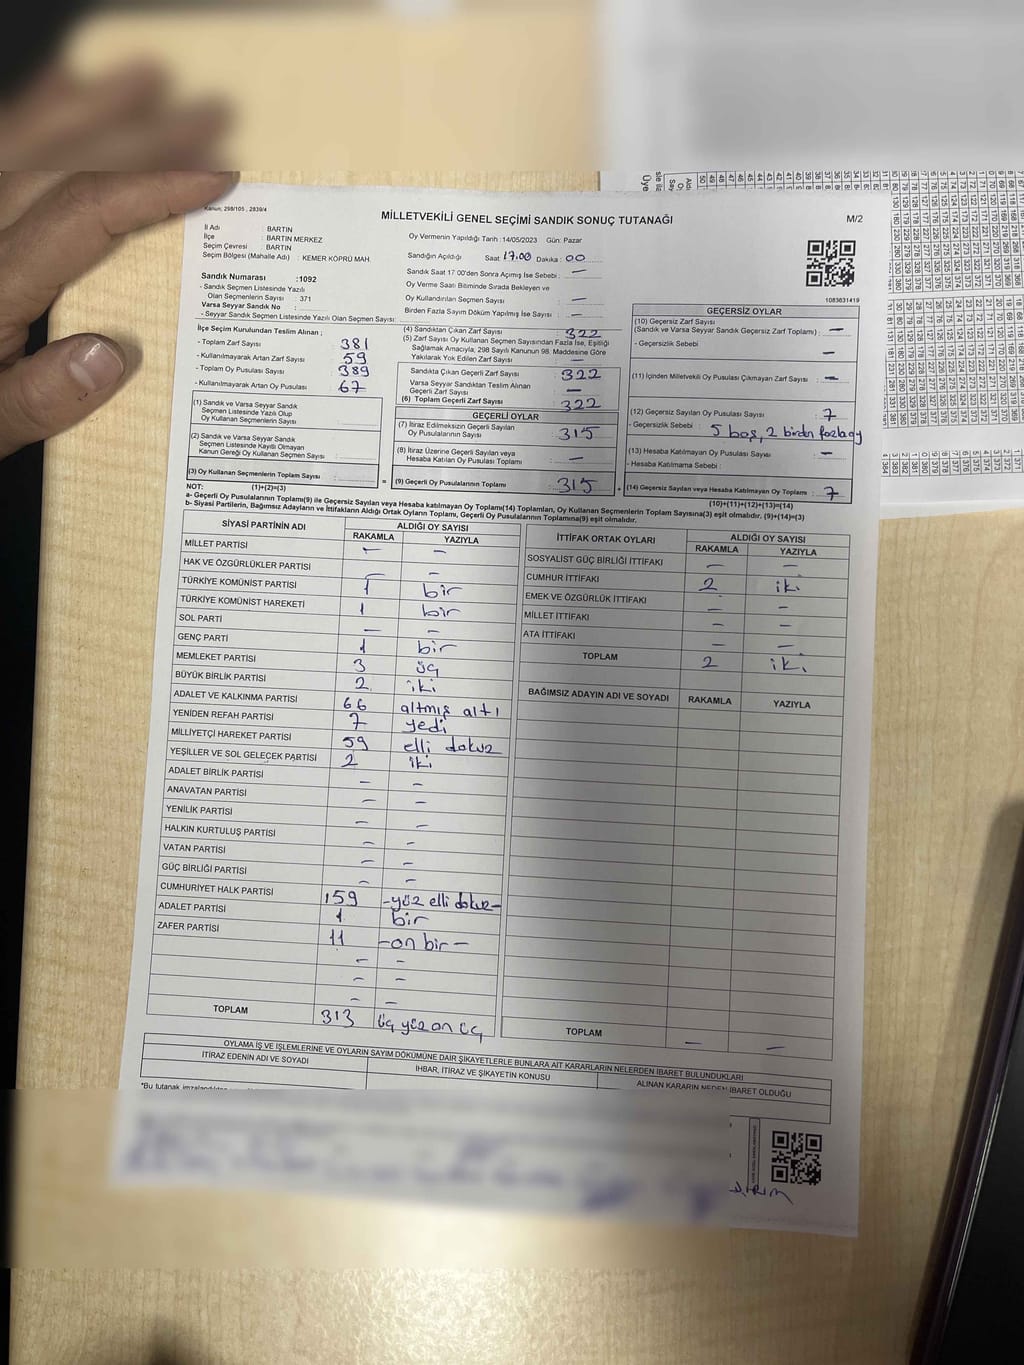 Kanun; 298/105 , 2839/4
MİLLETVEKİLİ GENEL SEÇİMİ SANDIK SONUÇ TUTANAĞI
M/2
İl Adı : BARTIN
İlçe : BARTIN MERKEZ
Seçim Çevresi : BARTIN
Seçim Bölgesi (Mahalle Adı) : KEMER KÖPRÜ MAH.
Sandık Numarası :1092
- Sandık Seçmen Listesinde Yazılı
Olan Seçmenlerin Sayısı : 371
Varsa Seyyar Sandık No :
- Seyyar Sandık Seçmen Listesinde Yazılı Olan Seçmen Sayısı:
Oy Vermenin Yapıldığı Tarih : 14/05/2023 Gün: Pazar
Sandığın Açıldığı Saat 17.00 Dakika : 00
Sandık Saat 17 00'den Sonra Açımış İse Sebebi : —
Oy Verme Saati Bitiminde Sırada Bekleyen ve
Oy Kullandırılan Seçmen Sayısı : —
Birden Fazla Sayım Döküm Yapılmış İse Sayısı : —
1083631419
İlçe Seçim Kurulundan Teslim Alınan ;
- Toplam Zarf Sayısı : 381
- Kullanılmayarak Artan Zarf Sayısı : 59
- Toplam Oy Pusulası Sayısı : 389
- Kullanılmayarak Artan Oy Pusulası : 67
(1) Sandık ve Varsa Seyyar Sandık
Seçmen Listesinde Yazılı Olup
Oy Kullanan Seçmenlerin Sayısı :
(2) Sandık ve Varsa Seyyar Sandık
Seçmen Listesinde Kayıtlı Olmayan
Kanun Gereği Oy Kullanan Seçmen Sayısı :
(3) Oy Kullanan Seçmenlerin Toplam Sayısı :
(1)+(2)=(3)
(4) Sandıktan Çıkan Zarf Sayısı : 322
(5) Zarf Sayısı Oy Kullanan Seçmen Sayısından Fazla İse, Eşitliği
Sağlamak Amacıyla, 298 Sayılı Kanunun 98. Maddesine Göre
Yakılarak Yok Edilen Zarf Sayısı : —
Sandıkta Çıkan Geçerli Zarf Sayısı : 322
Varsa Seyyar Sandıktan Teslim Alınan
Geçerli Zarf Sayısı : —
(6) Toplam Geçerli Zarf Sayısı : 322
GEÇERLİ OYLAR
(7) İtiraz Edilmeksizin Geçerli Sayılan
Oy Pusulalarının Sayısı : 315
(8) İtiraz Üzerine Geçerli Sayılan veya
Hesaba Katılan Oy Pusulası Toplamı : —
= (9) Geçerli Oy Pusulalarının Toplamı : 315
GEÇERSİZ OYLAR
(10) Geçersiz Zarf Sayısı
(Sandık ve Varsa Seyyar Sandık Geçersiz Zarf Toplamı) : —
- Geçersizlik Sebebi : —
(11) İçinden Milletvekili Oy Pusulası Çıkmayan Zarf Sayısı : —
(12) Geçersiz Sayılan Oy Pusulası Sayısı : 7
- Geçersizlik Sebebi : 5 boş, 2 birden fazla oy
(13) Hesaba Katılmayan Oy Pusulası Sayısı : —
- Hesaba Katılmama Sebebi :
+ (14) Geçersiz Sayılan veya Hesaba Katılmayan Oy Toplamı : 7
(10)+(11)+(12)+(13)=(14)
NOT:
a- Geçerli Oy Pusulalarının Toplamı(9) ile Geçersiz Sayılan veya Hesaba katılmayan Oy Toplamı(14) Toplamları, Oy Kullanan Seçmenlerin Toplam Sayısına(3) eşit olmalıdır. (9)+(14)=(3)
b- Siyasi Partilerin, Bağımsız Adayların ve İttifakların Aldığı Ortak Oyların Toplamı, Geçerli Oy Pusulalarının Toplamına(9) eşit olmalıdır.
SİYASİ PARTİNİN ADI ALDIĞI OY SAYISI
RAKAMLA YAZIYLA
MİLLET PARTİSİ — —
HAK VE ÖZGÜRLÜKLER PARTİSİ — —
TÜRKİYE KOMÜNİST PARTİSİ 1 bir
TÜRKİYE KOMÜNİST HAREKETİ 1 bir
SOL PARTİ — —
GENÇ PARTİ 1 bir
MEMLEKET PARTİSİ 3 üç
BÜYÜK BİRLİK PARTİSİ 2 iki
ADALET VE KALKINMA PARTİSİ 66 altmış altı
YENİDEN REFAH PARTİSİ 7 yedi
MİLLİYETÇİ HAREKET PARTİSİ 59 elli dokuz
YEŞİLLER VE SOL GELECEK PARTİSİ 2 iki
ADALET BİRLİK PARTİSİ — —
ANAVATAN PARTİSİ — —
YENİLİK PARTİSİ — —
HALKIN KURTULUŞ PARTİSİ — —
VATAN PARTİSİ — —
GÜÇ BİRLİĞİ PARTİSİ — —
CUMHURİYET HALK PARTİSİ 159 -yüz elli dokuz-
ADALET PARTİSİ 1 bir
ZAFER PARTİSİ 11 -on bir-
— —
— —
— —
TOPLAM 313 üç yüz on üç
İTTİFAK ORTAK OYLARI ALDIĞI OY SAYISI
RAKAMLA YAZIYLA
SOSYALİST GÜÇ BİRLİĞİ İTTİFAKI — —
CUMHUR İTTİFAKI 2 iki
EMEK VE ÖZGÜRLÜK İTTİFAKI — —
MİLLET İTTİFAKI — —
ATA İTTİFAKI — —
TOPLAM 2 iki
BAĞIMSIZ ADAYIN ADI VE SOYADI RAKAMLA YAZIYLA
TOPLAM — —
OYLAMA İŞ VE İŞLEMLERİNE VE OYLARIN SAYIM DÖKÜMÜNE DAİR ŞİKAYETLERLE BUNLARA AİT KARARLARIN NELERDEN İBARET BULUNDUKLARI
İTİRAZ EDENİN ADI VE SOYADI
İHBAR, İTİRAZ VE ŞİKAYETİN KONUSU
ALINAN KARARIN NEDEN İBARET OLDUĞU
*Bu tutanak